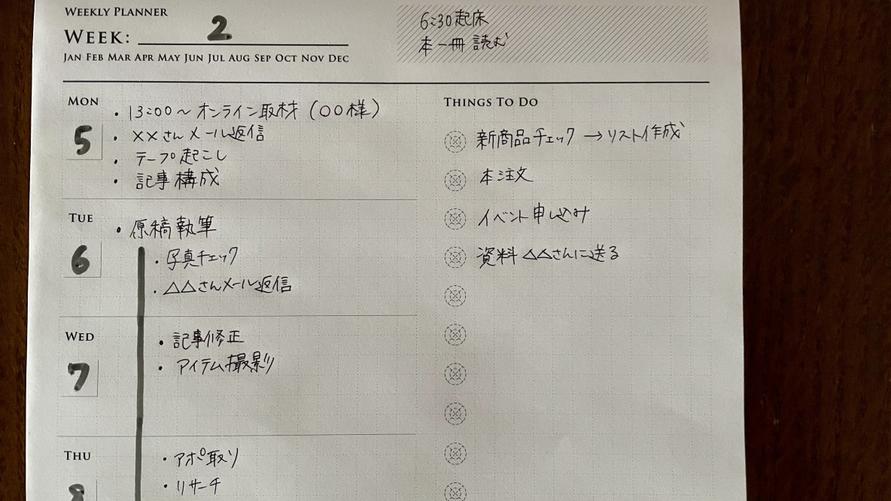 WEEKLY PLANNER
WEEK: 2
JAN FEB MAR APR MAY JUN JUL AUG SEP OCT NOV DEC
6:30起床
本一冊読む
MON
5
・13:00〜オンライン取材(〇〇様)
・××さんメール返信
・テープ起こし
・記事構成
TUE
6
・原稿執筆
・写真チェック
・△△さんメール返信
WED
7
・記事修正
・アイテム撮影
THU
8
・アポ取り
・リサーチ
THINGS TO DO
新商品チェック→リスト作成
本注文
イベント申し込み
資料△△さんに送る